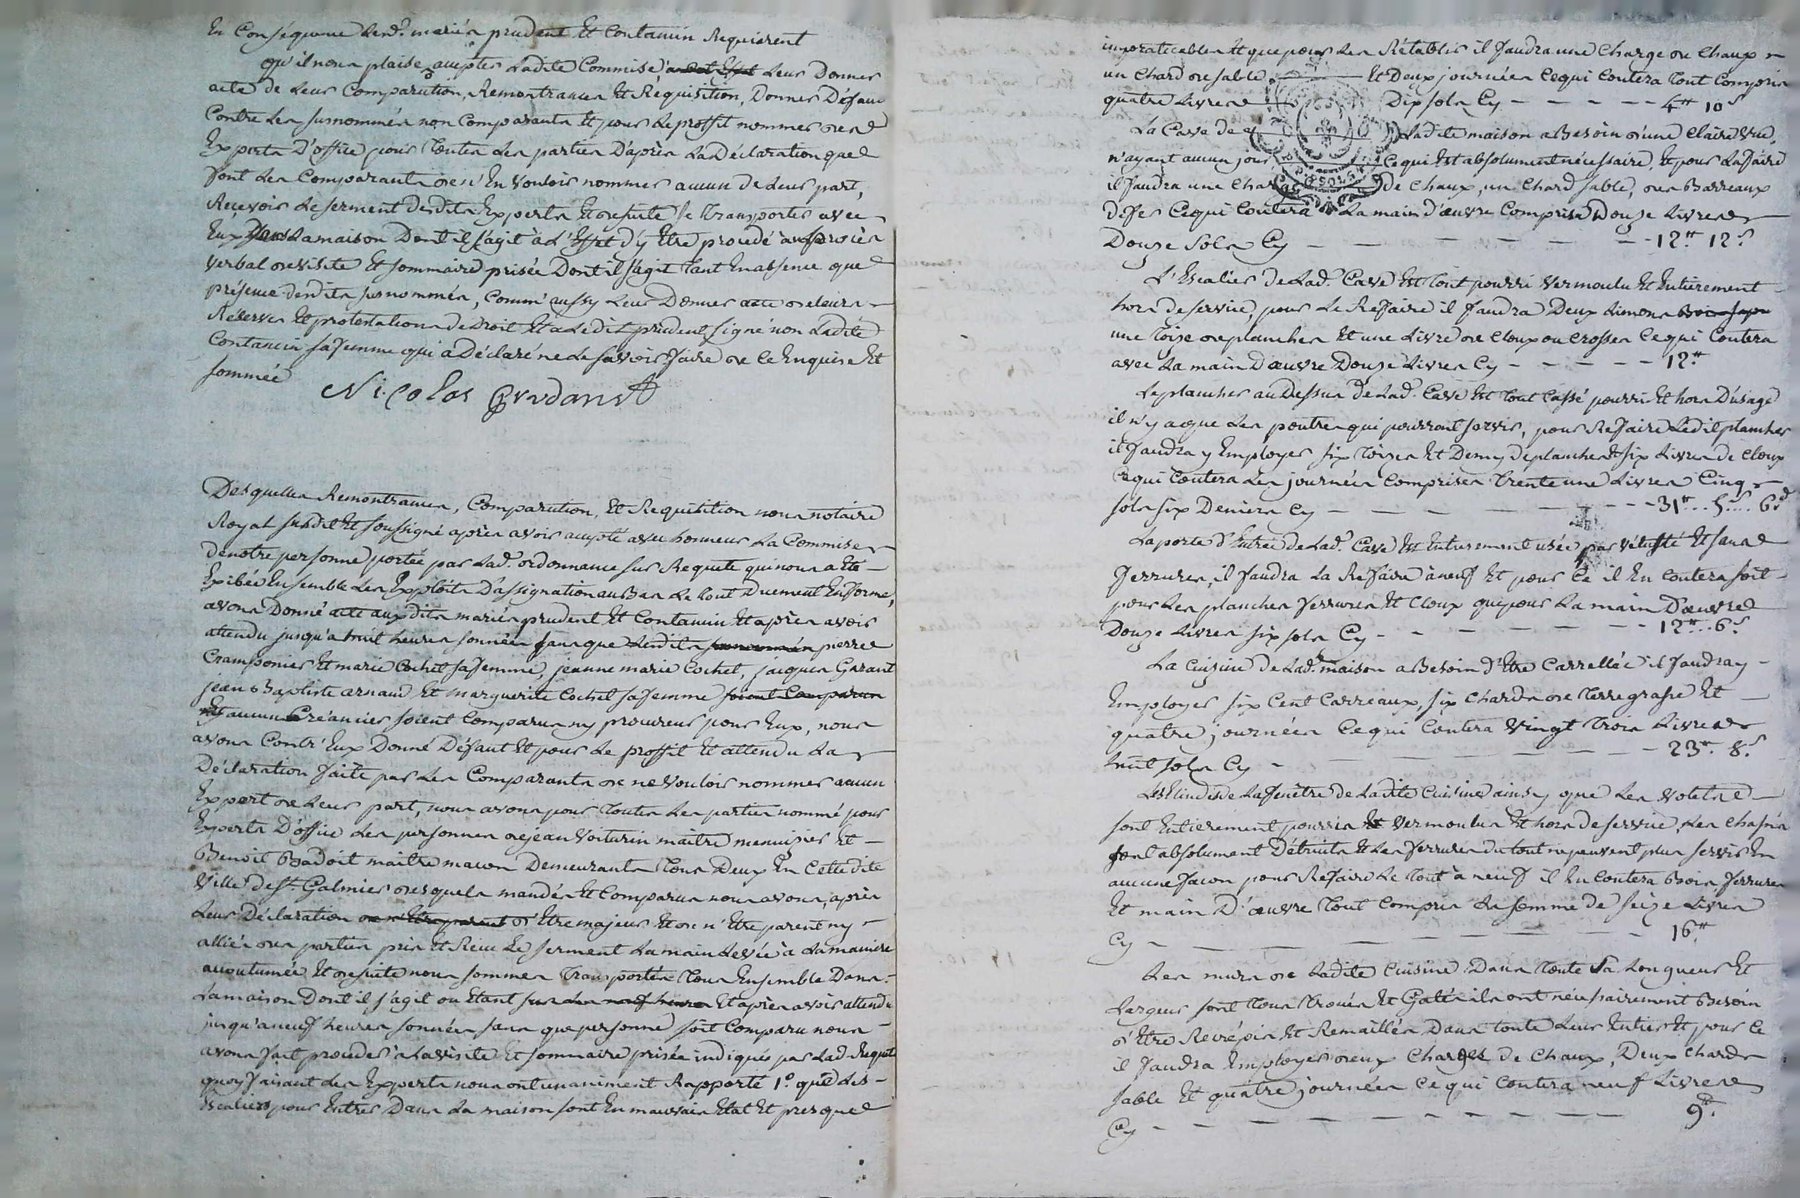 En Conséquence Lesd. mariés prudent Et Contamin Requierent
qu'il nous plaise accepter Ladite Commise, Leur Donner
acte de Leur Comparution, Remontrances Et Requisition, Donner Défaut
Contre Les susnommés non Comparants Et pour Le proffit nommer des
Experts D'office pour toutes Les parties D'après La Déclaration que
font Les Comparants de n'En vouloir nommer aucun de Leur part,
Recevoir Le serment desdits Experts Et de suite se transporter avec
Eux dans La maison Dont il s'agit à L'Effet d'y Etre procedé au procès
verbal de visite Et sommaire prisée Dont il s'agit tant En absence que
présence desdits susnommés, Comm'aussy Leur Donner acte de leurs
Réserves Et protestations de Droit Et a Ledit prudent signé non Ladite
Contamin sa femme qui a Déclaré ne Le savoir faire de Ce Enquise Et
sommée
Nicolas Prudant
Desquelles Remontrances, Comparution, Et Requisition nous notaire
Royal susdit Et soussigné après avoir accepté avec honneur La Commise
de notre personne portée par Lad. ordonnance sur Requete qui nous a Eté
Exibée Ensemble Les Exploits D'assignation au Bas Le tout Duement En forme,
avons Donné acte auxdits mariés prudent Et Contamin Et après avoir
attendu jusqu'a huit heures sonnées sans que Lesdits pierre
Cramponier Et marie Cochet sa femme, jeanne marie Cochet, jacques
jean Baptiste arnaud Et marguerite Cochet sa femme soient Comparus
aucun Créancier soient Comparus ny procureur pour Eux, nous
avons Contr'Eux Donné Défaut Et pour Le proffit Et attendu La
Déclaration faite par Les Comparants de ne vouloir nommer aucun
Expert de Leur part, nous avons pour toutes Les parties nommé pour
Experts D'office Les personnes de jean Voiturin maître menuisier Et
Benoit Badoit maitre maçon Demeurants tous Deux En Cettedite
Ville de St. Galmier desquels mandés Et Comparus nous avons, après
Leur Déclaration d'Etre majeurs Et de n'Etre parents ny
alliés des parties pris Et Reçu Le serment La main Levée à La maniere
accoutumée Et de suite nous sommes transportés tous Ensemble Dans
La maison Dont il s'agit ou Etant sur Les neuf heures Et après avoir attendu
jusqu'a neuf heures sonnées sans que personne soit Comparu nous
avons fait proceder à La visite Et sommaire prisée indiquée par Lad. Requete
quoy faisant Les Experts nous ont unaniment Rapporté 1.° que Les
Escaliers pour Entrer Dans La maison sont En mauvais Etat Et presque
impraticables Et que pour Les Rétablir il faudra une Charge de Chaux
un Chard de sable Et Deux journées Ce qui Coutera tout Compris
quatre Livres Dix sols Cy - - - - - 4tt 10s
La Cave de Ladite maison a Besoin d'une Claire vue,
n'ayant aucun jour Ce qui Est absolument nécessaire, Et pour La faire
il faudra une Charge de Chaux, un Chard sable, des Barreaux
de fer Ce qui Coutera La main d'œuvre Comprise Douze Livres
Douze Sols Cy - - - - - - - 12tt 12s
L'Escalier de Lad. Cave Est tout pourri vermoulu Et Entierement
hors de service, pour Le Refaire il faudra Deux Limons
une toise de plancher Et une Livre de Cloux ou Crosses Ce qui Coutera
avec La main D'œuvre Douze Livres Cy - - - - - 12tt
Le plancher au Dessus de Lad. Cave Est tout Cassé pourri Et hors D'usage
il n'y a que Les poutres qui pourront servir, pour Refaire Ledit plancher
il faudra y Employer six toises Et Demy de plancher Et six Livres de Cloux
Ce qui Coutera Les journées Comprises trente une Livres Cinq
sols six Deniers Cy - - - - - - - 31tt .. 5s .. 6d
La porte d'Entrée de Lad. Cave Est Entierement usée par vétusté Et sans
ferrures, il faudra La Refaire à neuf Et pour Ce il En Coutera soit
pour Les planches ferrures Et Cloux que pour La main D'œuvre
Douze Livres six sols Cy - - - - - - - 12tt .. 6s
La Cuisine de Lad. maison a Besoin d'Etre Carrellée il faudra y
Employer six Cent Carreaux, six Chards de terre grasse Et
quatre journées Ce qui Coutera Vingt trois Livres
huit sols Cy - - - - - - - 23tt 8s
Les de La fenêtre de Ladite Cuisine ainsy que Les volets
sont Entierement pourris Et vermoulus Et hors de service, Les chassis
sont absolument Détruits Et Les ferrures du tout ne peuvent plus servir En
aucune façon pour Refaire Le tout à neuf il En Coutera Bois ferrures
Et main D'œuvre tout Compris La somme de seize Livres
Cy - - - - - - - 16tt
Les murs de Ladite Cuisine Dans toute sa Longueur Et
Largeur sont tous troués Et Gatés ils ont nécessairement Besoin
d'Etre Recrépis Et Remaillés Dans toute Leur Entier Et pour Ce
il faudra Employer deux Charges de Chaux, Deux Chards
sable Et quatre journées Ce qui Coutera neuf Livres
Cy - - - - - - - 9tt